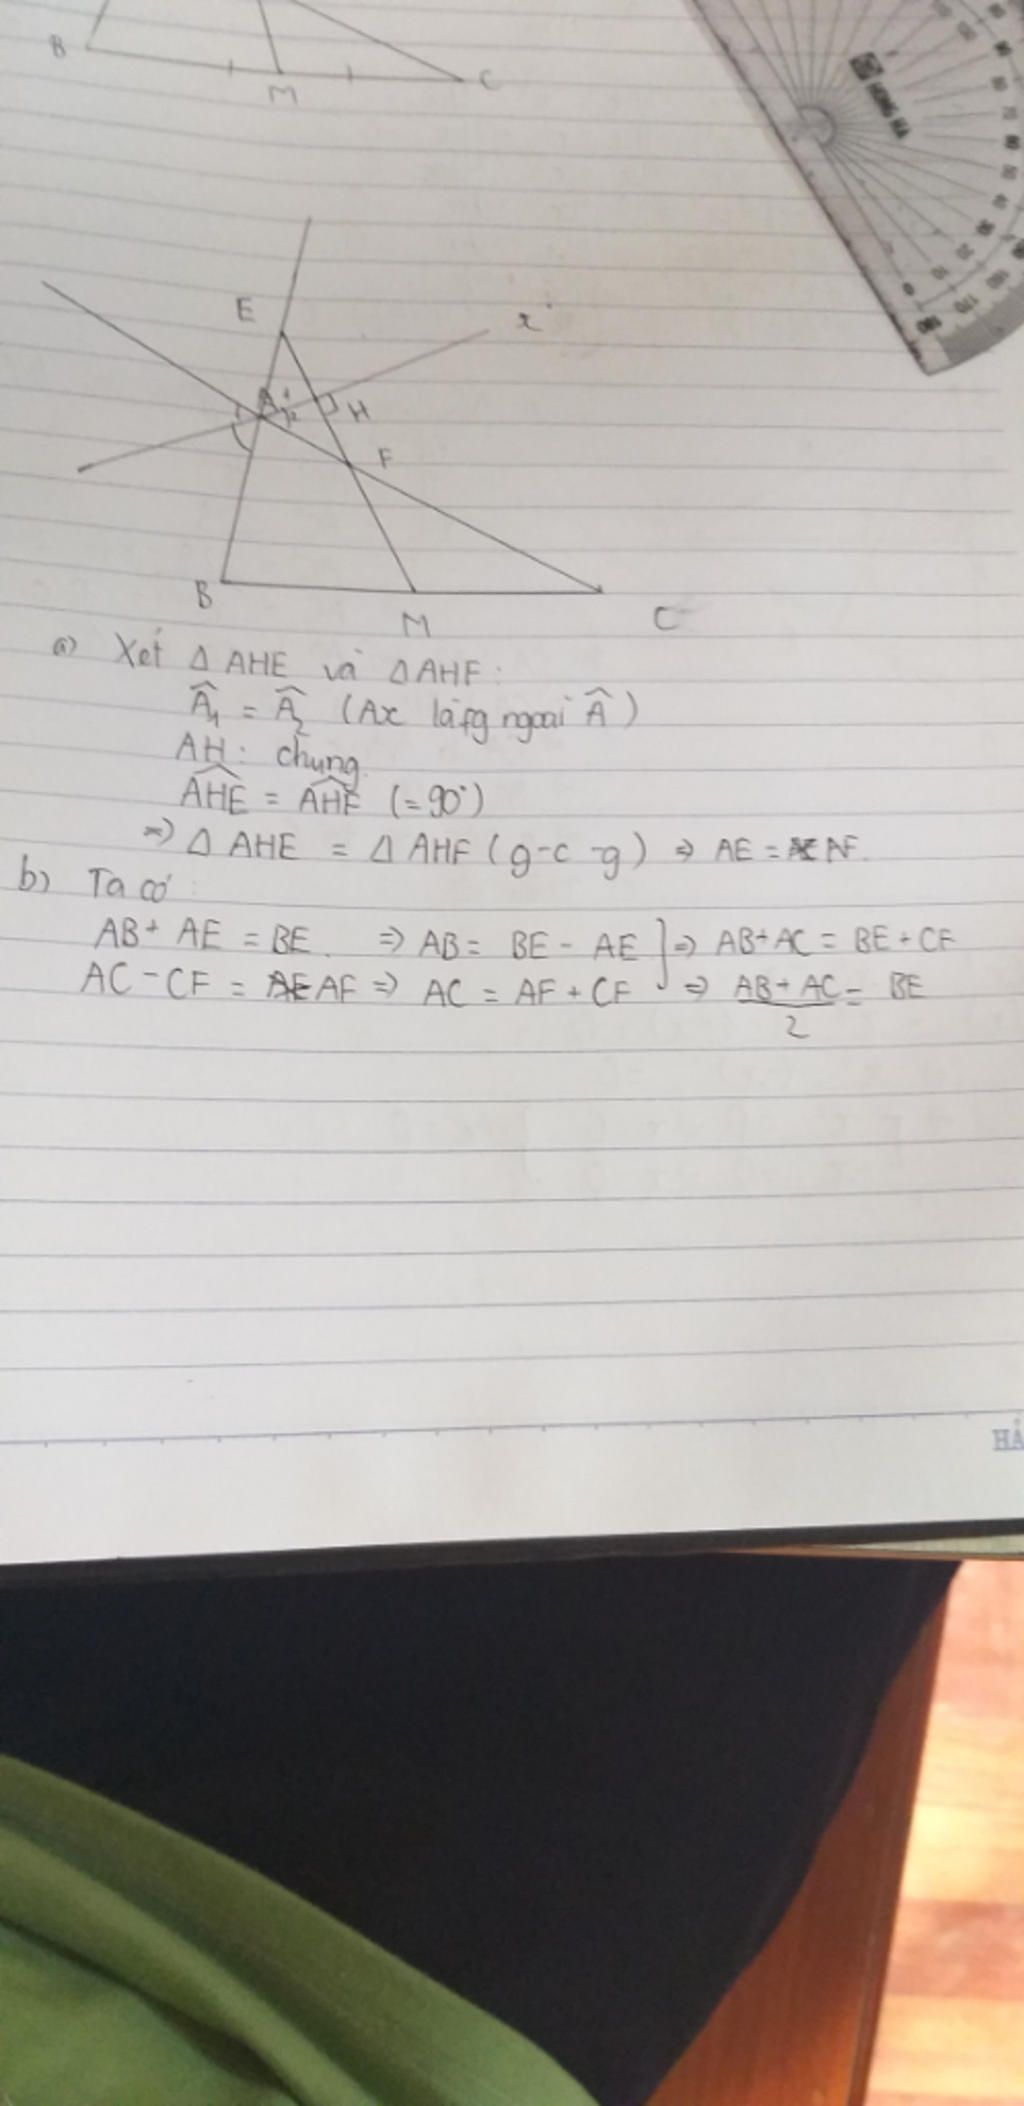 B
M
C
HỒNG HÀ
E
x
A 1
2
H
F
B
M
C
a) Xét △ AHE và △ AHF:
Â₁ = Â₂ (Ax là fg ngoài Â)
AH: chung
AHE = AHF (= 90°)
=> △ AHE = △ AHF (g-c-g) => AE = AF.
b) Ta có:
AB + AE = BE. => AB = BE - AE } => AB + AC = BE + CF
AC - CF = AF => AC = AF + CF => AB + AC/2 = BE
HẢ